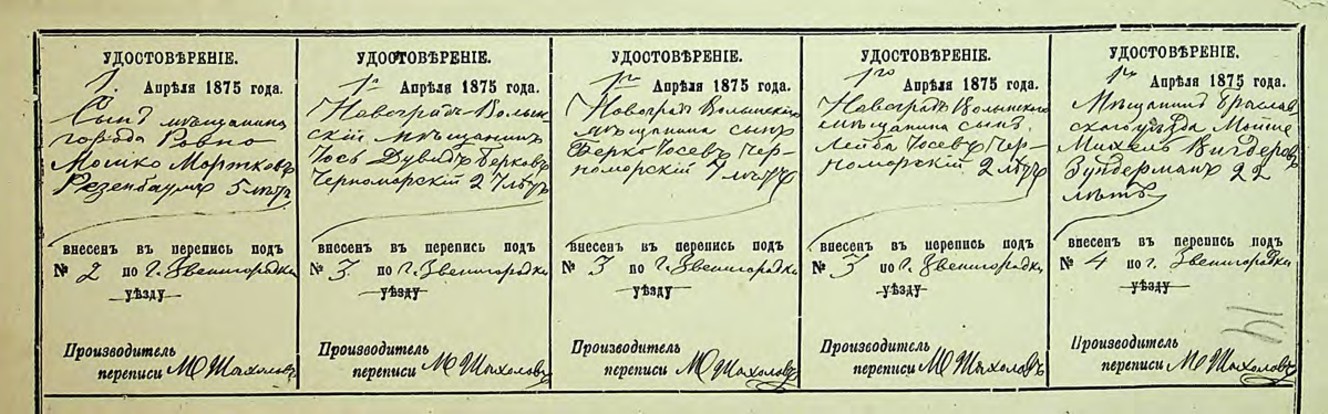 УДОСТОВѢРЕНІЕ.
1. Апрѣля 1875 года.
Сынъ мѣщанина
города Ровно
Мошко Мортковъ
Розенбаумъ 5 лѣтъ
внесенъ въ перепись подъ
№ 2 по г. Звенигородки
уѣзду
Производитель
переписи
УДОСТОВѢРЕНІЕ.
1го Апрѣля 1875 года.
Новоградъ-Волын-
скій мѣщанинъ
Іось Дувидъ Берковъ
Черноморскій 27 лѣтъ
внесенъ въ перепись подъ
№ 3 по г. Звенигородки
уѣзду
Производитель
переписи
УДОСТОВѢРЕНІЕ.
1го Апрѣля 1875 года.
Новоградъ Волынскаго
мѣщанина сынъ
Берко Іосевъ Чер-
номорскій 7 лѣтъ
внесенъ въ перепись подъ
№ 3 по г. Звенигородки
уѣзду
Производитель
переписи
УДОСТОВѢРЕНІЕ.
1го Апрѣля 1875 года.
Новоградъ Волынскаго
мѣщанина сынъ
Лейба Іосевъ Чер-
номорскій 2 лѣтъ
внесенъ въ перепись подъ
№ 3 по г. Звенигородки
уѣзду
Производитель
переписи
УДОСТОВѢРЕНІЕ.
1го Апрѣля 1875 года.
Мѣщанинъ Брацлав
скаго уѣзда Мойше
Михель Вигдоровъ
Зундерманъ 22
лѣтъ
внесенъ въ перепись подъ
№ 4 по г. Звенигородки
уѣзду
Производитель
переписи